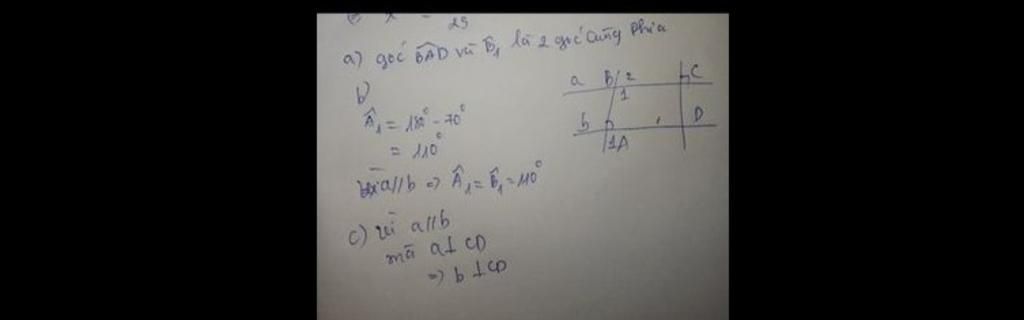 x = 29
a) góc BAD và B₁ là 2 góc cùng phía
b)
Â₁ = 180° - 70°
= 110°
a//b => Â₁ = B̂₁ = 110°
c) vì a//b
mà a⊥CD
=> b⊥CD
a B 2 C
1
b D
1A